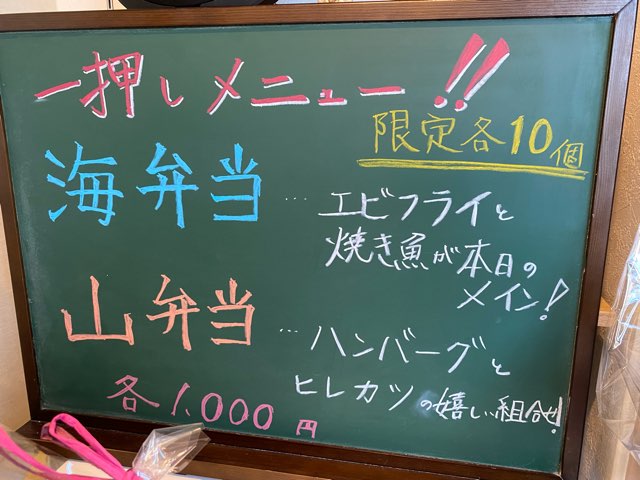 一押しメニュー!!
限定各10個
海弁当…エビフライと
焼き魚が本日の
メイン!
山弁当…ハンバーグと
ヒレカツの嬉しい組合せ!
各1,000円